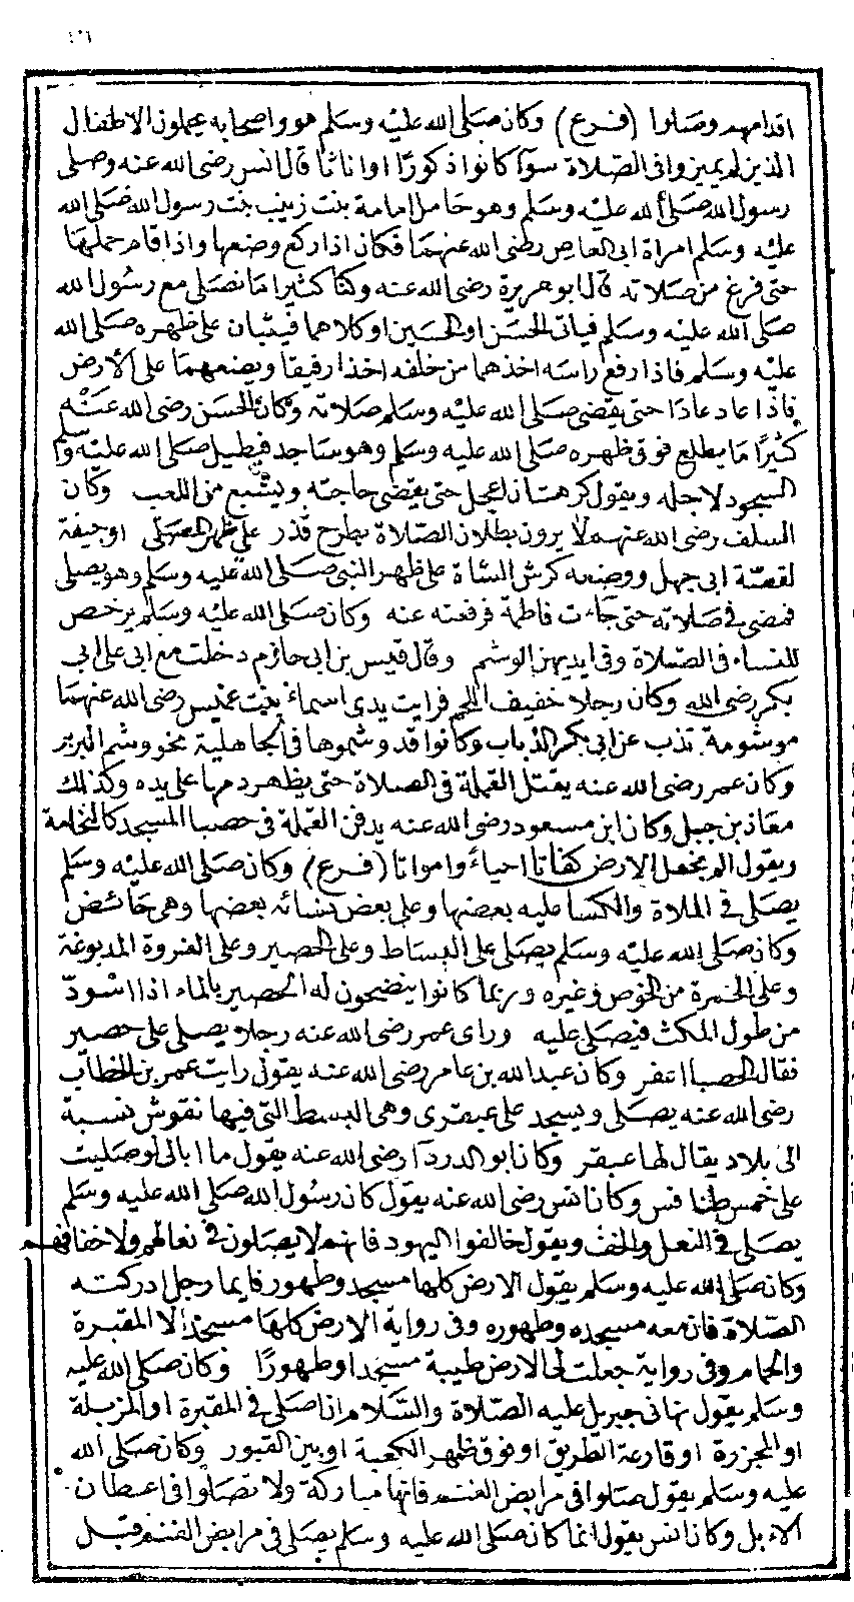 ١٠٦
اقدامهم وصلوا (فرع) وكان صلى الله عليه وسلم هو واصحابه يحملون الاطفال
الذين لم يميزوا في الصلاة سوآ كانوا ذكورًا او اناثا قال انس رضى الله عنه وصلى
رسول الله صلى الله عليه وسلم وهو حامل امامة بنت زينب بنت رسول الله صلى الله
عليه وسلم امراة ابى العاص رضى الله عنهما فكان اذا ركع وضعها واذا قام حملها
حتى فرغ من صلاته قال ابو هريرة رضى الله عنه وكنا كثيرا ما نصلى مع رسول الله
صلى الله عليه وسلم فياتى الحسن او الحسين او كلاهما فيثبان على ظهره صلى الله
عليه وسلم فاذا رفع راسه اخذهما من خلفه اخذا رفيقا ويضعهما على الأرض
فاذا عاد عادا حتى يقضى صلى الله عليه وسلم صلاته وكان الحسن رضى الله عنه
كثيرًا ما يطلع فوق ظهره صلى الله عليه وسلم وهو ساجد فيطيل صلى الله عليه وسلم
السجود لاجله ويقول كرهت ان اعجل حتى يقضى حاجته ويشبع من اللعب وكان
السلف رضى الله عنهم لا يرون بطلان الصلاة بطرح قذر على ظهر المصلى او جيفة
لقصة ابى جهل ووضعه كرش الشاة على ظهر النبى صلى الله عليه وسلم وهو يصلى
فمضى في صلاته حتى جاءت فاطمة فرفعته عنه وكان صلى الله عليه وسلم يرخص
للنساء في الصلاة وفى ايديهن الوشم وقال قيس بن ابى حازم دخلت مع ابى على ابى
بكر رضى الله وكان رجلا خفيف اللحم فرايت يدى اسماء بنت عميس رضى الله عنهما
موشومة تذب عن ابى بكر الذباب وكانوا قد وشموها في الجاهلية نحو وشم البربر
وكان عمر رضى الله عنه يقتل القملة في الصلاة حتى يظهر دمها على يده وكذلك
معاذ بن جبل وكان ابن مسعود رضى الله عنه يدفن القملة في حصبا المسجد كالنخامة
ويقول الم نجعل الارض كفاتا احياءً وامواتا (فرع) وكان صلى الله عليه وسلم
يصلى في الملاة والكسا عليه بعضها وعلى بعض نسائه بعضها وهى حائض
وكان صلى الله عليه وسلم يصلى على البساط وعلى الحصير وعلى الفروة المدبوغة
وعلى الخمرة من الخوص وغيره وربما كانوا ينضحون له الحصير بالماء اذا اسودّ
من طول المكث فيصلى عليه وراى عمر رضى الله عنه رجلا يصلى على حصير
فقال الحصبا اعفر وكان عبد الله بن عامر رضى الله عنه يقول رايت عمر بن الخطاب
رضى الله عنه يصلى ويسجد على عبقرى وهى البسط التى فيها نقوش نسبة
الى بلاد يقال لها عبقر وكان ابو الدردآ رضى الله عنه يقول ما ابالى لو صليت
على خمس طنافس وكان انس رضى الله عنه يقول كان رسول الله صلى الله عليه وسلم
يصلى في النعل والخف ويقول خالفوا اليهود فانهم لا يصلون في نعالهم ولا خفافهم
وكان صلى الله عليه وسلم يقول الارض كلها مسجد وطهور فايما رجل ادركته
الصلاة فان معه مسجده وطهوره وفى رواية الارض كلها مسجد الا المقبرة
والحمام وفى رواية جعلت لى الارض طيبة مسجدا وطهورًا وكان صلى الله عليه
وسلم يقول نهانى جبريل عليه الصلاة والسلام ان اصلى في المقبرة او المزبلة
او المجزرة او قارعة الطريق او فوق ظهر الكعبة او بين القبور وكان صلى الله
عليه وسلم يقول صلوا في مرابض الغنم فانها مباركة ولا تصلوا في اعطان
الابل وكان انس يقول انما كان صلى الله عليه وسلم يصلى في مرابض الغنم قبل